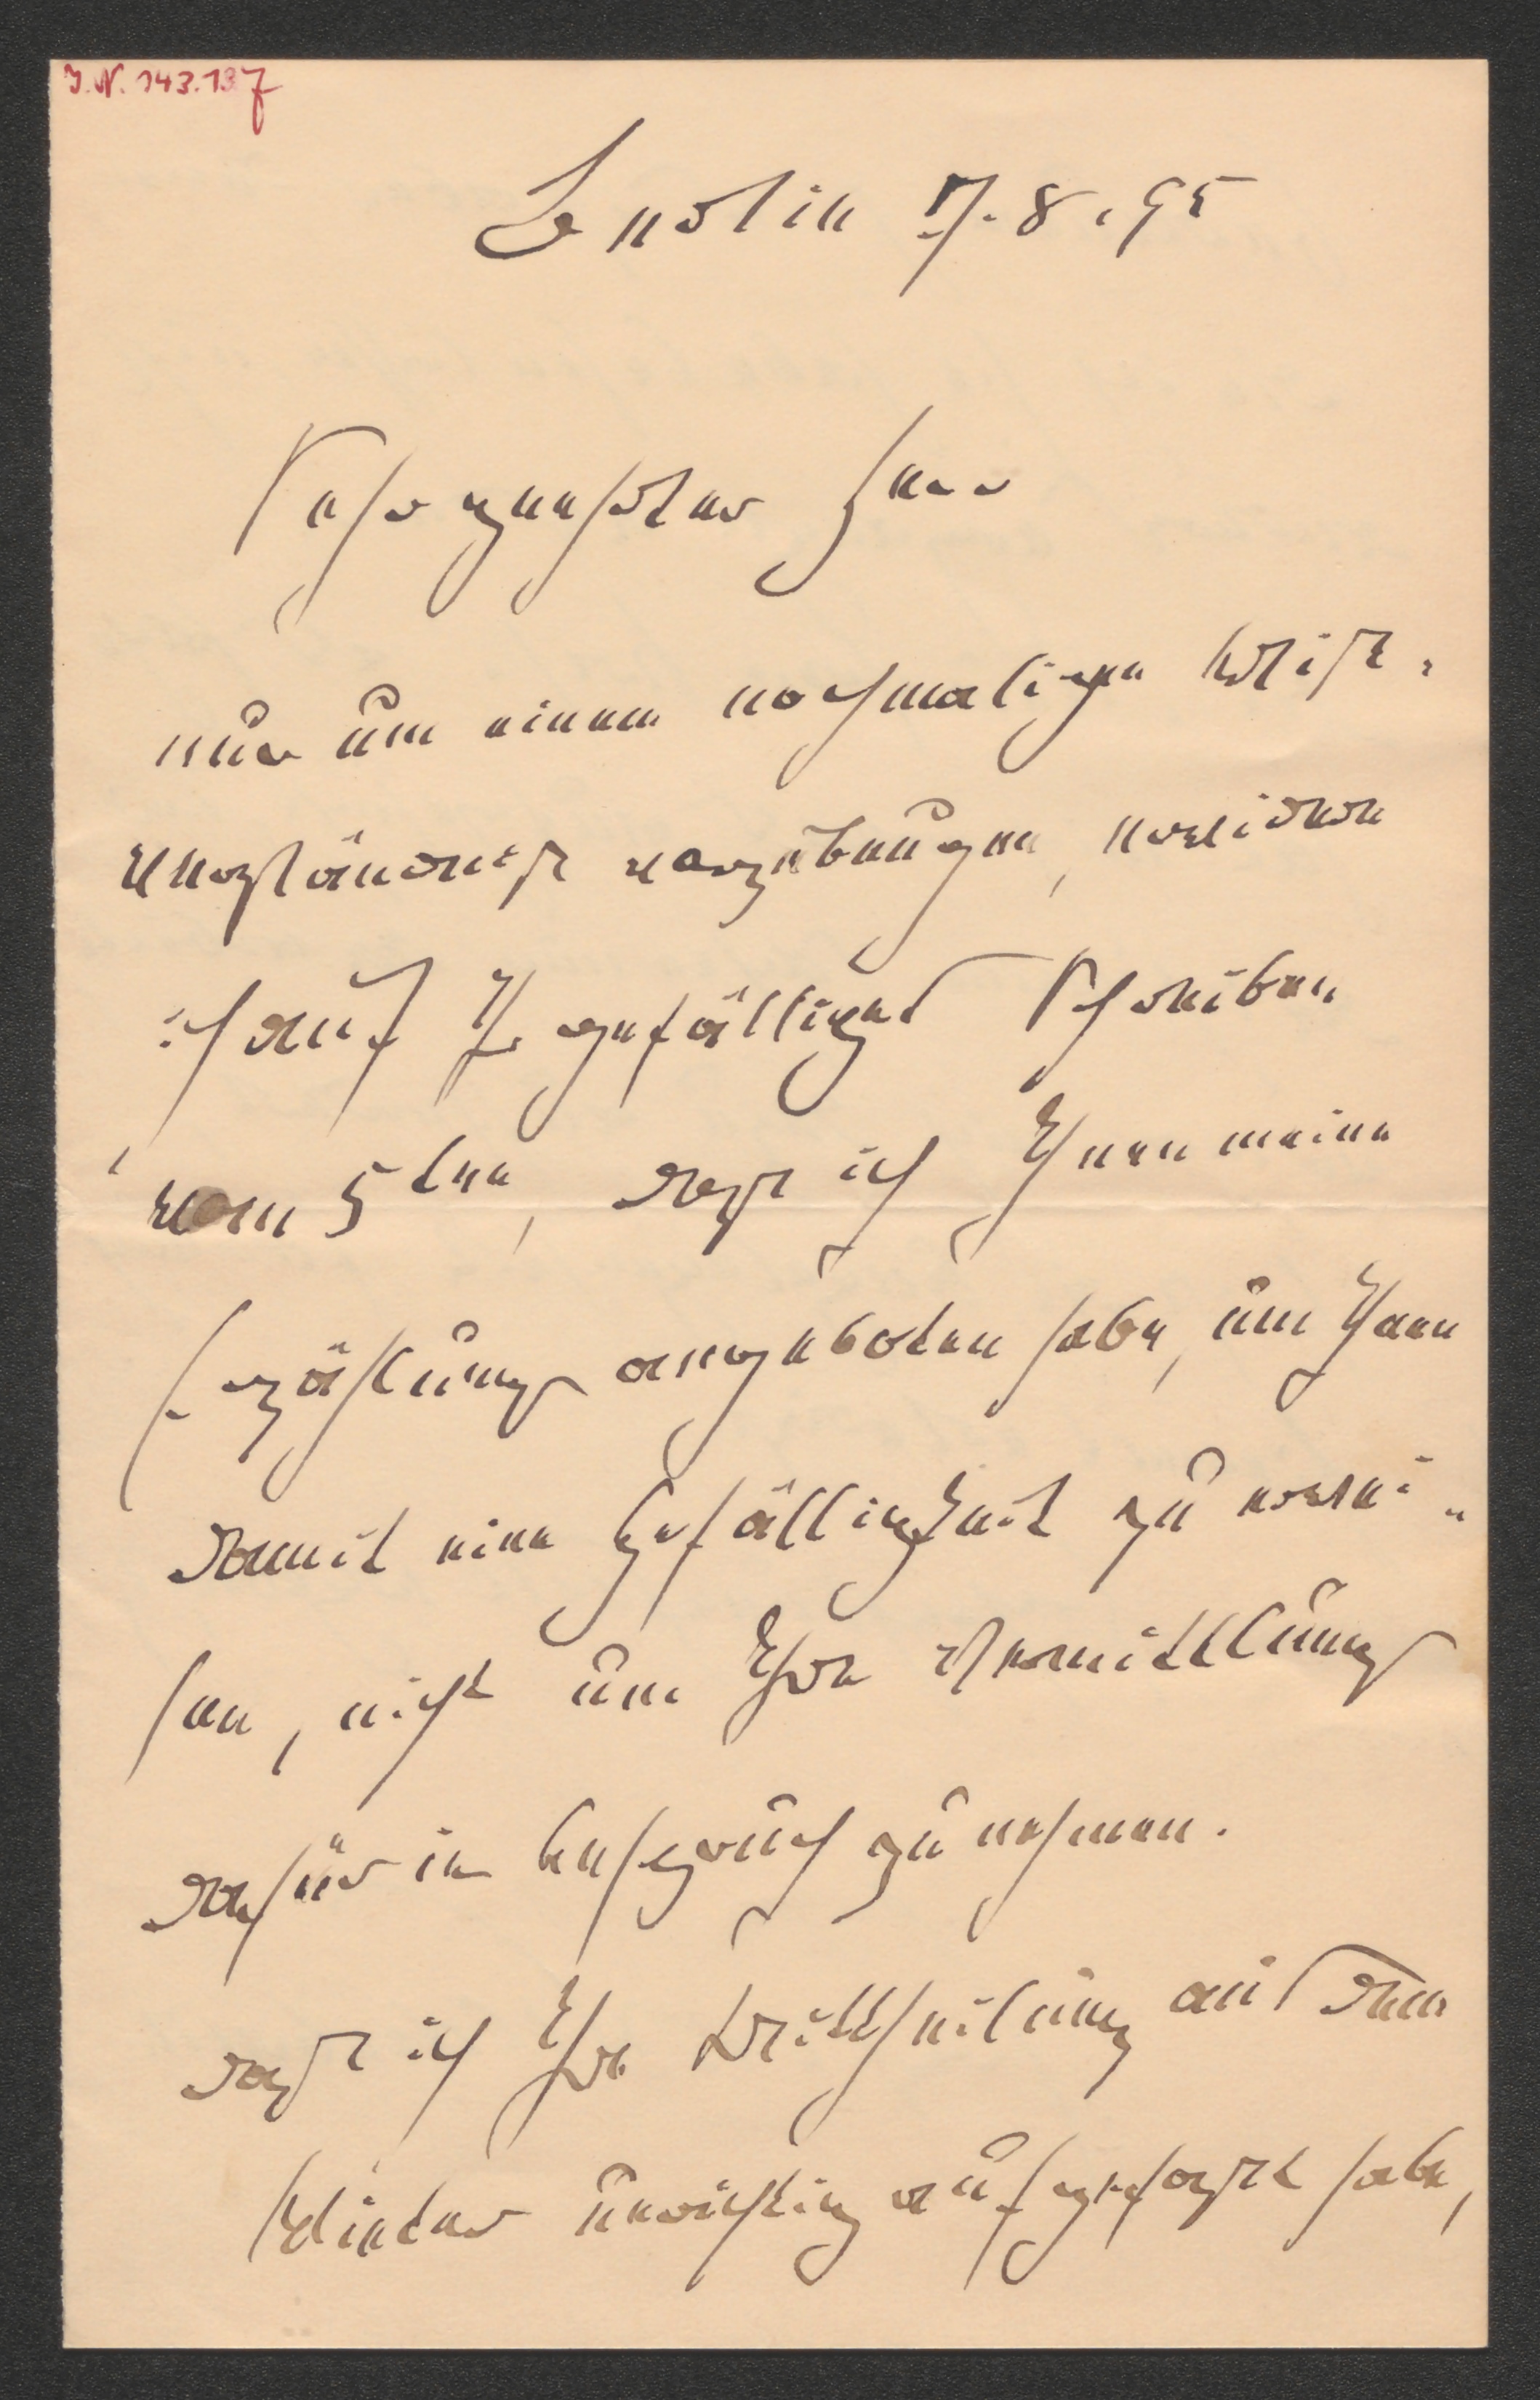 I.N. 143.137
Berlin 7.8.95
Sehr geehrter Herr
nur um einem nochmaligen Miß-
verständniß vorzubeugen, erwidere
ich auf Ihr gefälliges Schreiben
vom 5ten, daß ich Ihnen meine
Erzählung angeboten habe, um Ihnen
damit eine Gefälligkeit zu erwei-
sen, nicht um Ihre Vermittlung
dafür in Anspruch zu nehmen.
daß ich Ihre Mittheilung aus dem
Winter unrichtig aufgefaßt habe,